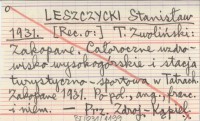 LESZCZYCKI Stanisław
1931. [Rec. o:] T. Zwoliński:
Zakopane. Całoroczne uzdro-
wisko wysokogórskie i stacja
turystyczno-sportowa w Tatrach.
Zakopane 1931. Po pol., ang., franc.
i niem. — Prz. Zdroj. Kąpiel.